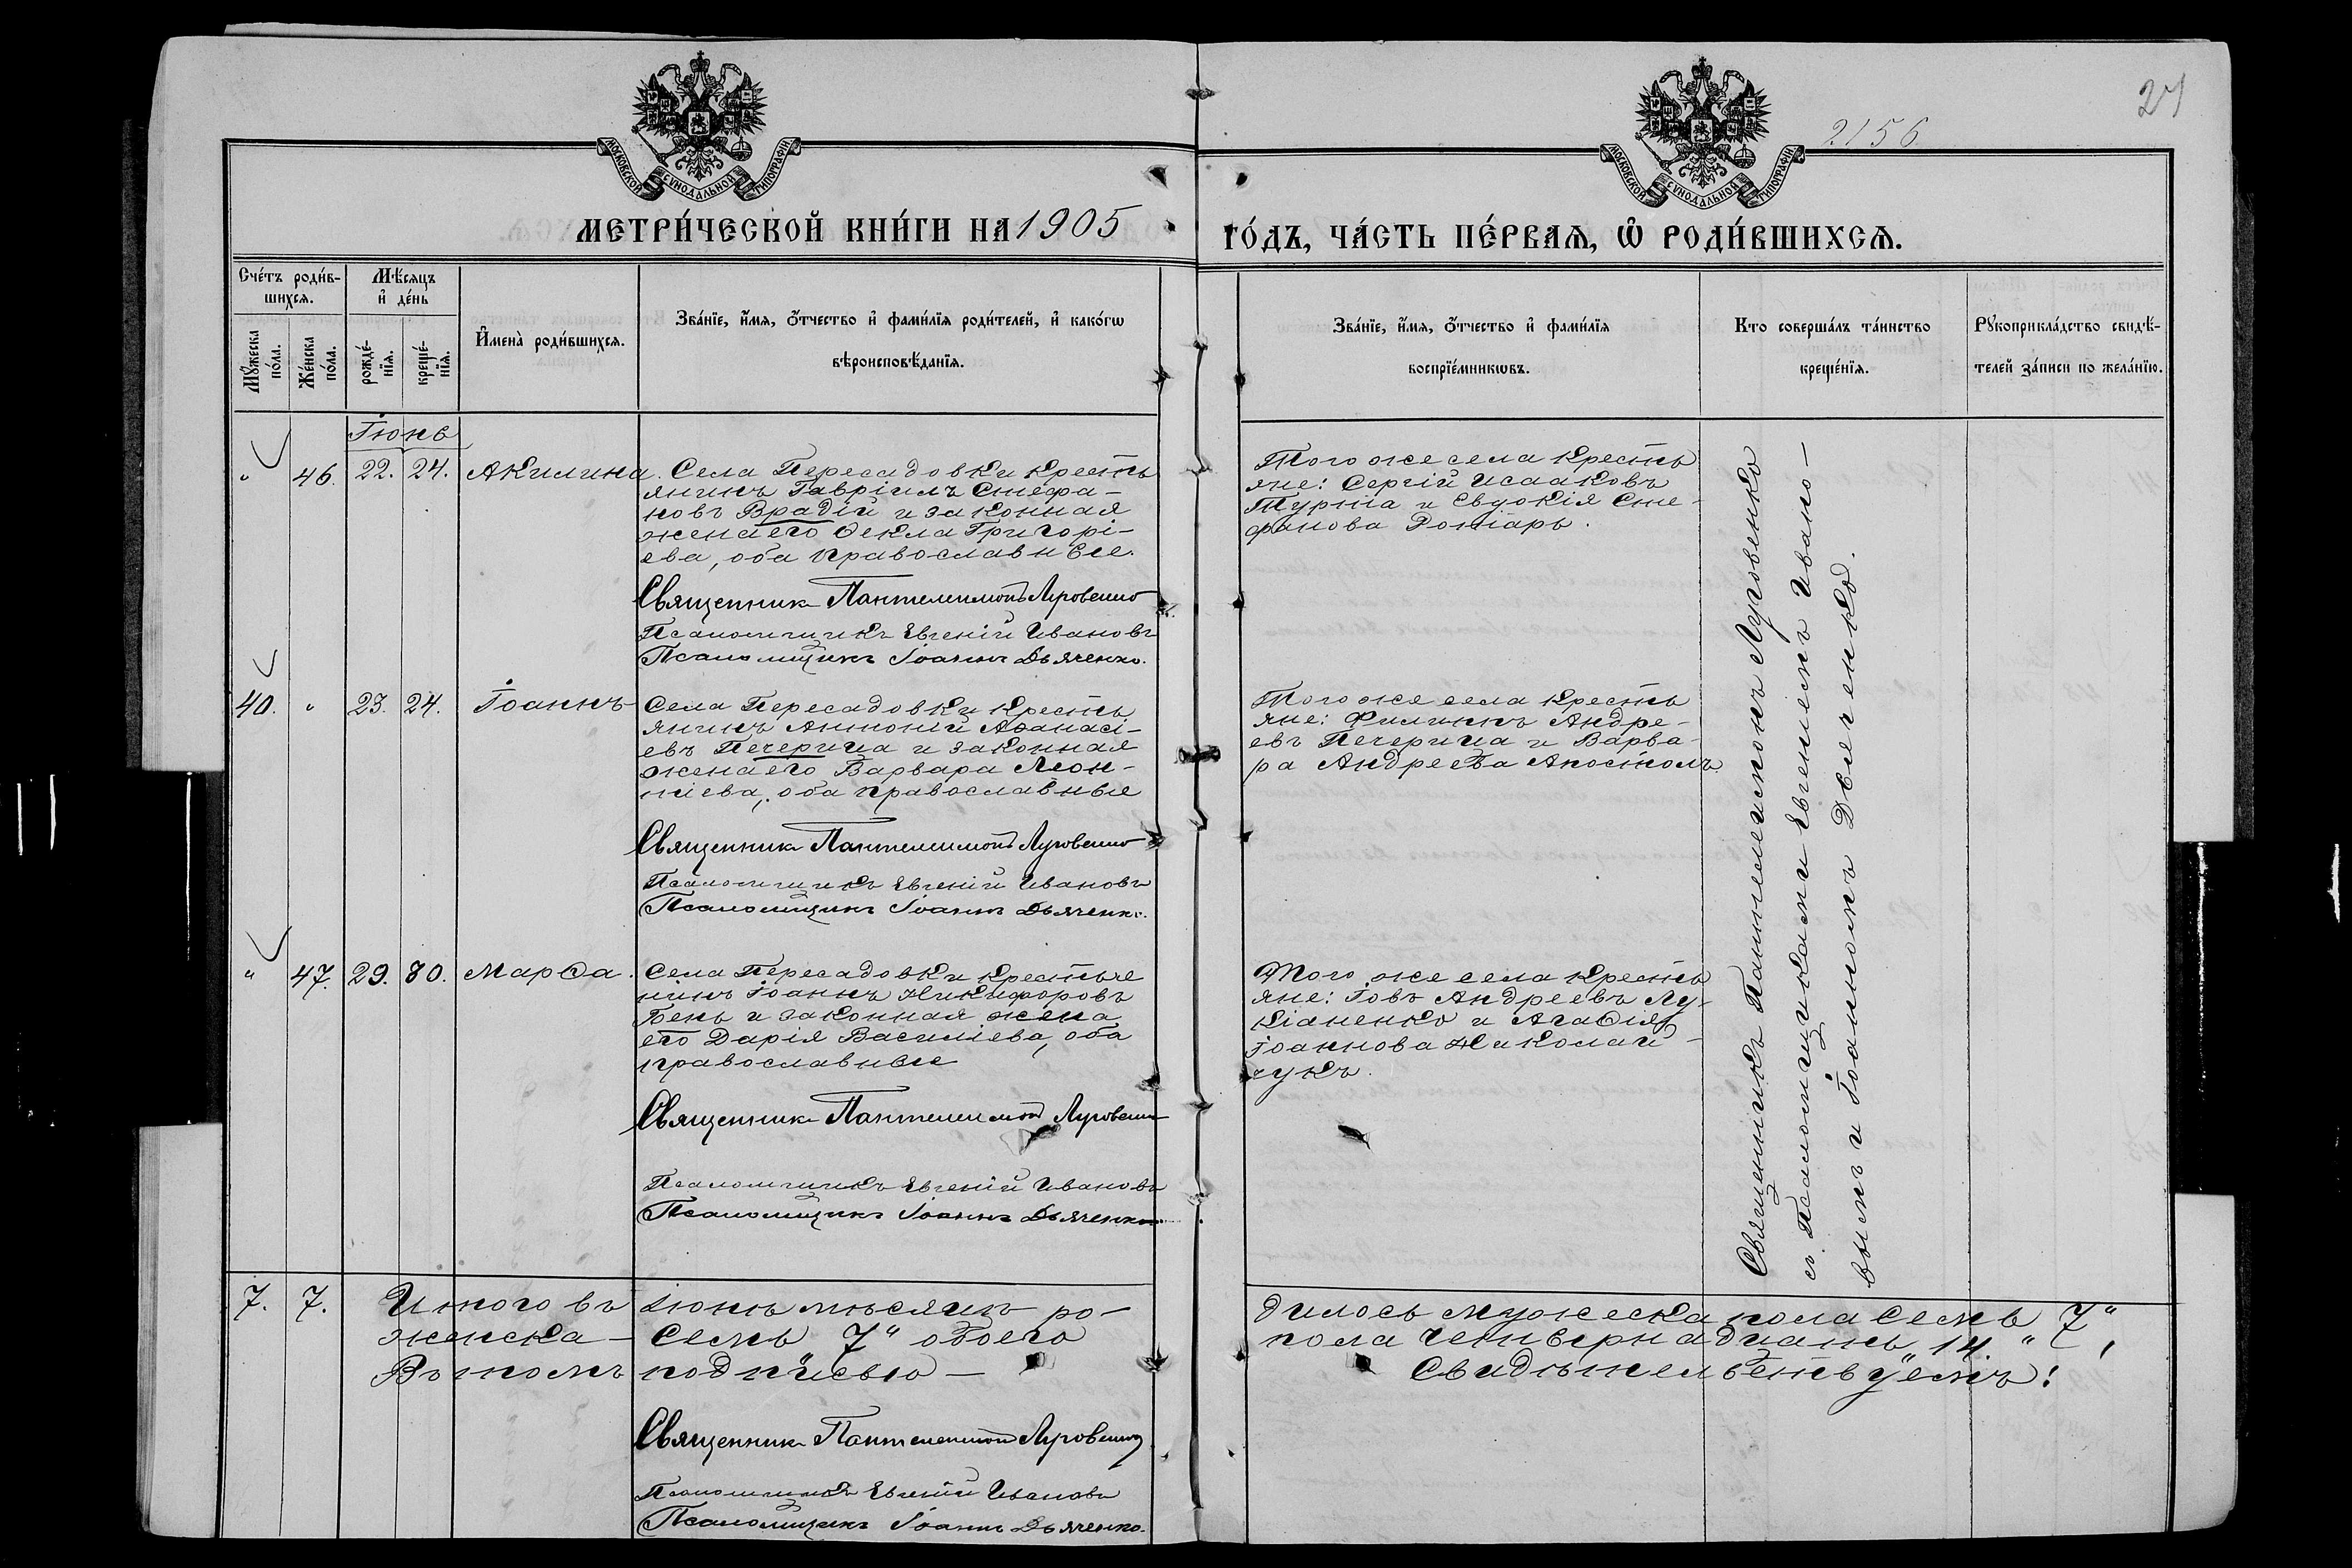 27
2156
МОСКОВСКОЙ СѴНОДАЛЬНОЙ ТИПОГРАФІИ
МОСКОВСКОЙ СѴНОДАЛЬНОЙ ТИПОГРАФІИ
МЕТРИ́ЧЕСКОЙ КНИ́ГИ НА 1905 ГО́ДЪ, ЧА́СТЬ ПЕ́РВАѦ, Ѽ РОДИ́ВШИХСѦ.
Сче́тъ роди́в-
шихсѧ.
Мꙋ́жеска по́ла.
Же́нска по́ла.
Мѣ́сѧцъ
и҆ де́нь
рожде́-
нїѧ.
креще́-
нїѧ.
И҆мена̀ роди́вшихсѧ.
Зва́нїе, и҆́мѧ, ѻ҆́тчество и҆ фами́лїѧ роди́телей, и҆ како́гѡ
вѣроисповѣ́данїѧ.
Зва́нїе, и҆́мѧ, ѻ҆́тчество и҆ фами́лїѧ
воспрїе́мникѡвъ.
Кто соверша́лъ та́инство
креще́нїѧ.
Рꙋкоприкла́дство свидѣ́-
телей за́писи по жела́нїю.
Іюнь
" 46. 22. 24. Акилина.
Села Пересадовки кресть
янинъ Гавріилъ Стефа-
новъ Врадій и законная
жена его Ѳекла Григорі-
ева, оба православные.
Священникъ Пантелеимонъ Луговенко
Псаломщикъ Евгеній Ивановъ
Псаломщикъ Іоаннъ Дьяченко.
Того же села кресть
яне: Сергій Исааковъ
Турта и Евдокія Сте-
фанова Ротарь.
40. " 23. 24. Іоаннъ
Села Пересадовки кресть
янинъ Антоній Аѳанасі-
евъ Печерица и законная
жена его Варвара Леон-
тіева, оба православные
Священникъ Пантелеимонъ Луговенко
Псаломщикъ Евгеній Ивановъ
Псаломщикъ Іоаннъ Дьяченко.
Того же села кресть
яне: Филиппъ Андре-
евъ Печерица и Варва-
ра Андреева Апостолъ
" 47. 29. 30. Марѳа.
Села Пересадовки крестья
нинъ Іоаннъ Никифоровъ
Бень и законная жена
его Дарія Василіева, оба
православные
Священникъ Пантелеимонъ Луговенко
Псаломщикъ Евгеній Ивановъ
Псаломщикъ Іоаннъ Дьяченко
Того же села кресть
яне: Іовъ Андреевъ Лу-
кіаненко и Агаѳія
Іоаннова Николай-
чукъ.
Священникъ Пантелеимонъ Луговенко
съ Псаломщиками Евгеніемъ Ивано-
вымъ и Іоанномъ Дьяченко.
7. 7. Итого въ Іюнѣ мѣсяцѣ ро- дилось мужеска пола Семь 7"
женска - Семь 7" обоего пола четырнадцать 14. "
Въ томъ подписью - Свидѣтельствуемъ:
Священникъ Пантелеимонъ Луговенко
Псаломщикъ Евгеній Ивановъ
Псаломщикъ Іоаннъ Дьяченко.